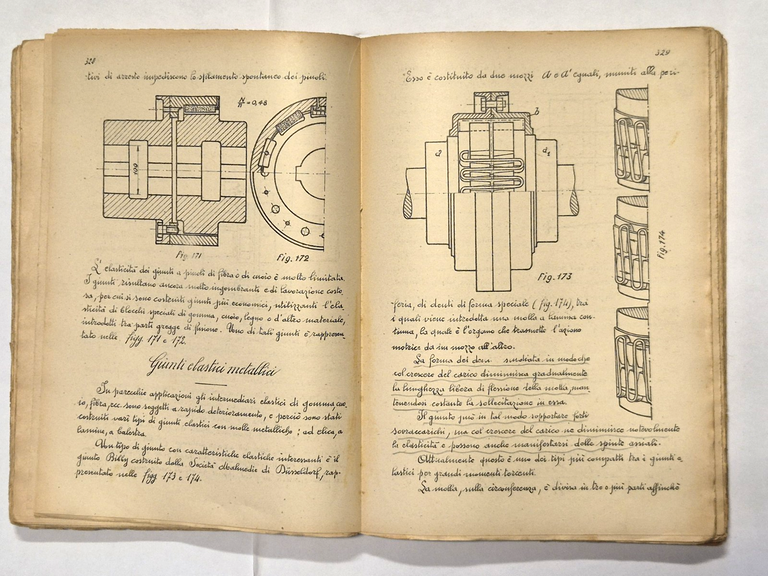 328
tivi di arresto impediscono lo sfilamento spontaneo dei pinoli.
100
Fig. 171
Fig. 172
L'elasticità dei giunti a pinoli di fibra o di cuoio è molto limitata.
I giunti risultano ancora molto ingombranti e di lavorazione costo-
sa, per cui si sono costruiti giunti più economici, utilizzanti l'ela-
sticità di blocchi speciali di gomma, cuoio, legno o d'altro materiale,
introdotti tra parti gregge di fusione. Uno di tali giunti è rappresen-
tato nelle figg. 171 e 172.
Giunti elastici metallici
In parecchie applicazioni gli intermediari elastici di gomma, cuo-
io, fibra, ecc. sono soggetti a rapido deterioramento, e perciò sono stati
costruiti vari tipi di giunti elastici con molle metalliche; ad elica, a
lamina, a balestra.
Un tipo di giunto con caratteristiche elastiche interessanti è il
giunto Bibby costruito dalla Società Malmedie di Düsseldorf, rap-
presentato nelle figg. 173 e 174.
329
Esso è costituito da due mozzi A e A' eguali, muniti alla peri-
b
d₁
Fig. 173
Fig. 174
feria, di denti di forma speciale (fig. 174), tra
i quali viene introdotta una molla a lamina con-
tinua, la quale è l'organo che trasmette l'azione
motrice da un mozzo all'altro.
La forma dei denti in modo che
col crescere del carico diminuisca gradualmente
la lunghezza libera di flessione della molla, man-
tenendosi costante la sollecitazione in essa.
Il giunto può in tal modo sopportare forti
sovraccarichi, ma col crescere del carico ne diminuisce notevolmente
la elasticità e possono anche manifestarsi delle spinte assiali.
Attualmente questo è uno dei tipi più compatti tra i giunti e-
lastici per grandi momenti torcenti.
La molla, sulla circonferenza, è divisa in tre o più parti affinché